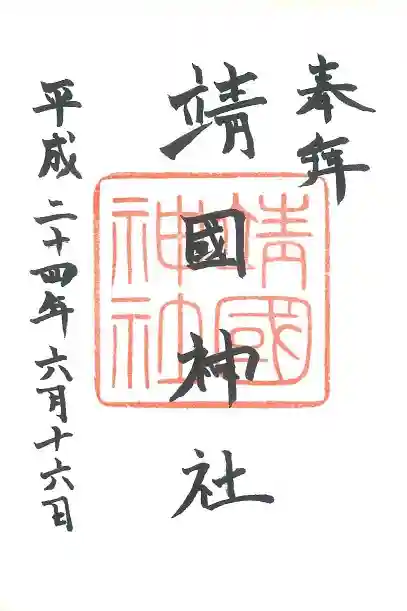 奉拜
靖國神社
靖國
神社
平成二十四年六月十六日